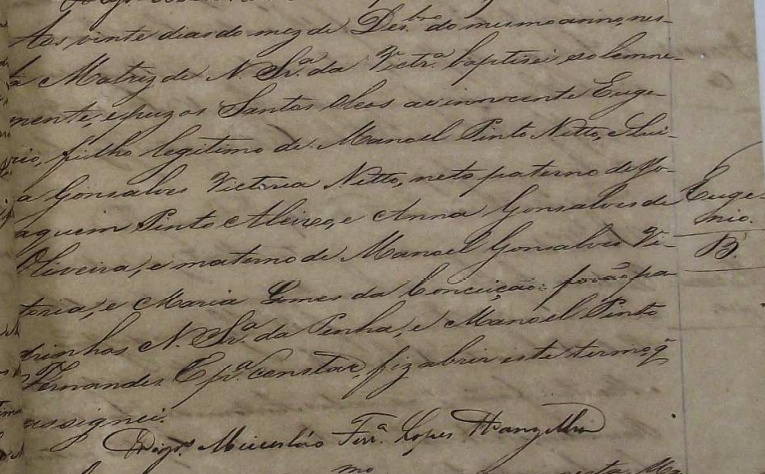 Aos vinte dias do mez de Desbro do mesmo anno, nes-
ta Matriz de N. Sra. da Victra. baptisei solemne-
mente, e puz os Santos Oleos ao innocente Euge-
nio, filho legitimo de Manoel Pinto Netto, e Lui-
a Gonsalves Victoria Netto, neto paterno de Jo-
aquim Pinto Aleixo, e Anna Gonsalves de
Oliveira, e materno de Manoel Gonsalves Vi-
toria, e Maria Gomes da Conceição: forão pa
drinhos N. Sra. da Penha, e Manoel Pinto
Fernandes. E pa. constar, fiz abrir este termo q
assignei.
Miceslão Ferra. Lopes Wanzeller
Euge-
nio.
B.